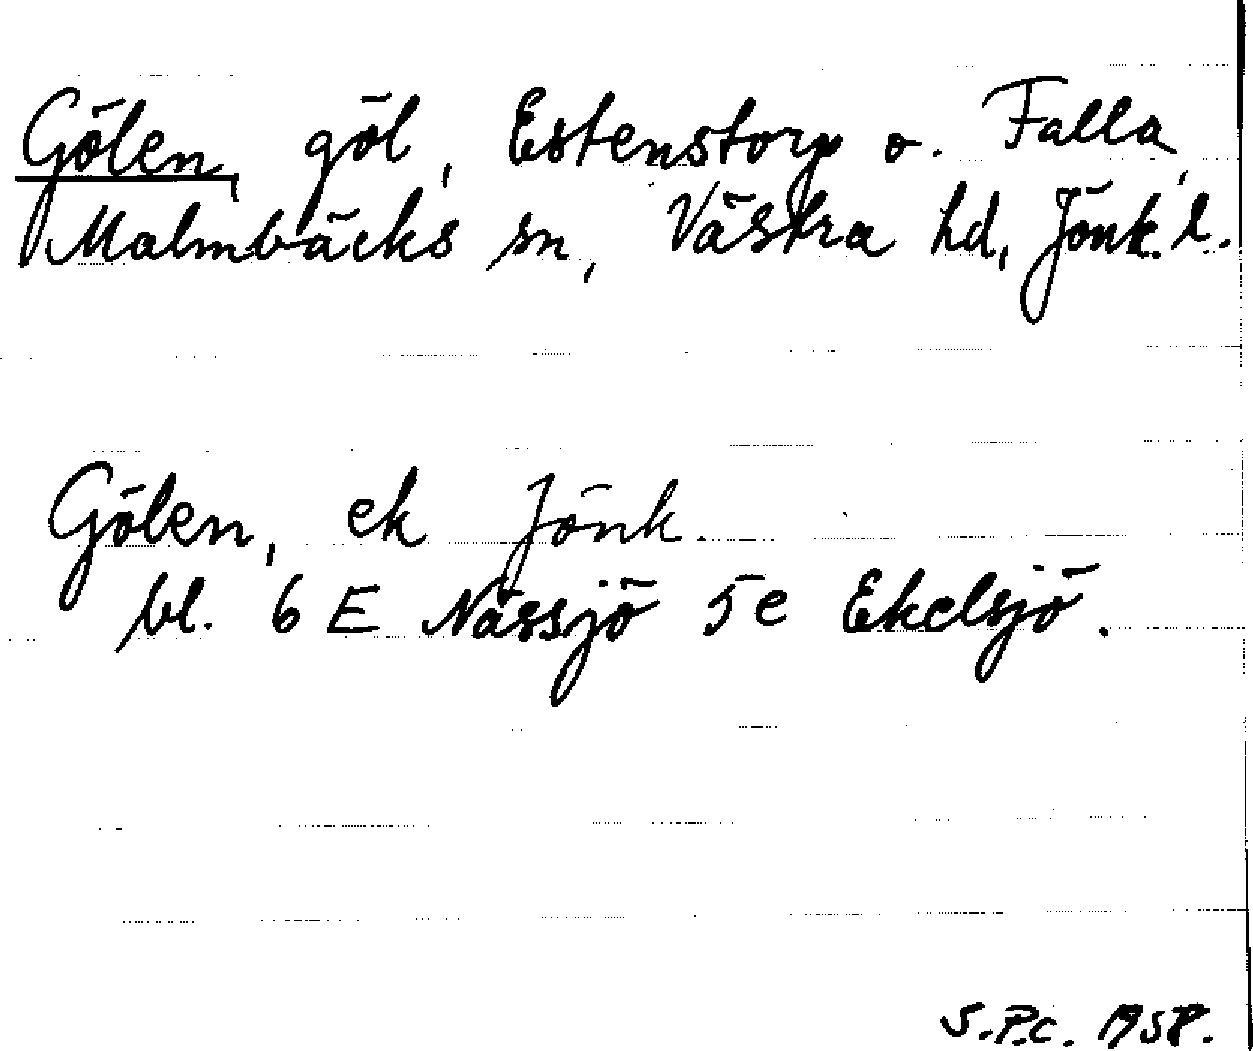 Gölen, göl, Estenstorp o. Falla,
Malmbäcks sn, Västra hd, Jönk. l.
Gölen, ek Jönk.
bl. 6 E Nässjö 5e Ekelsjö.
S.P.C. 1958.